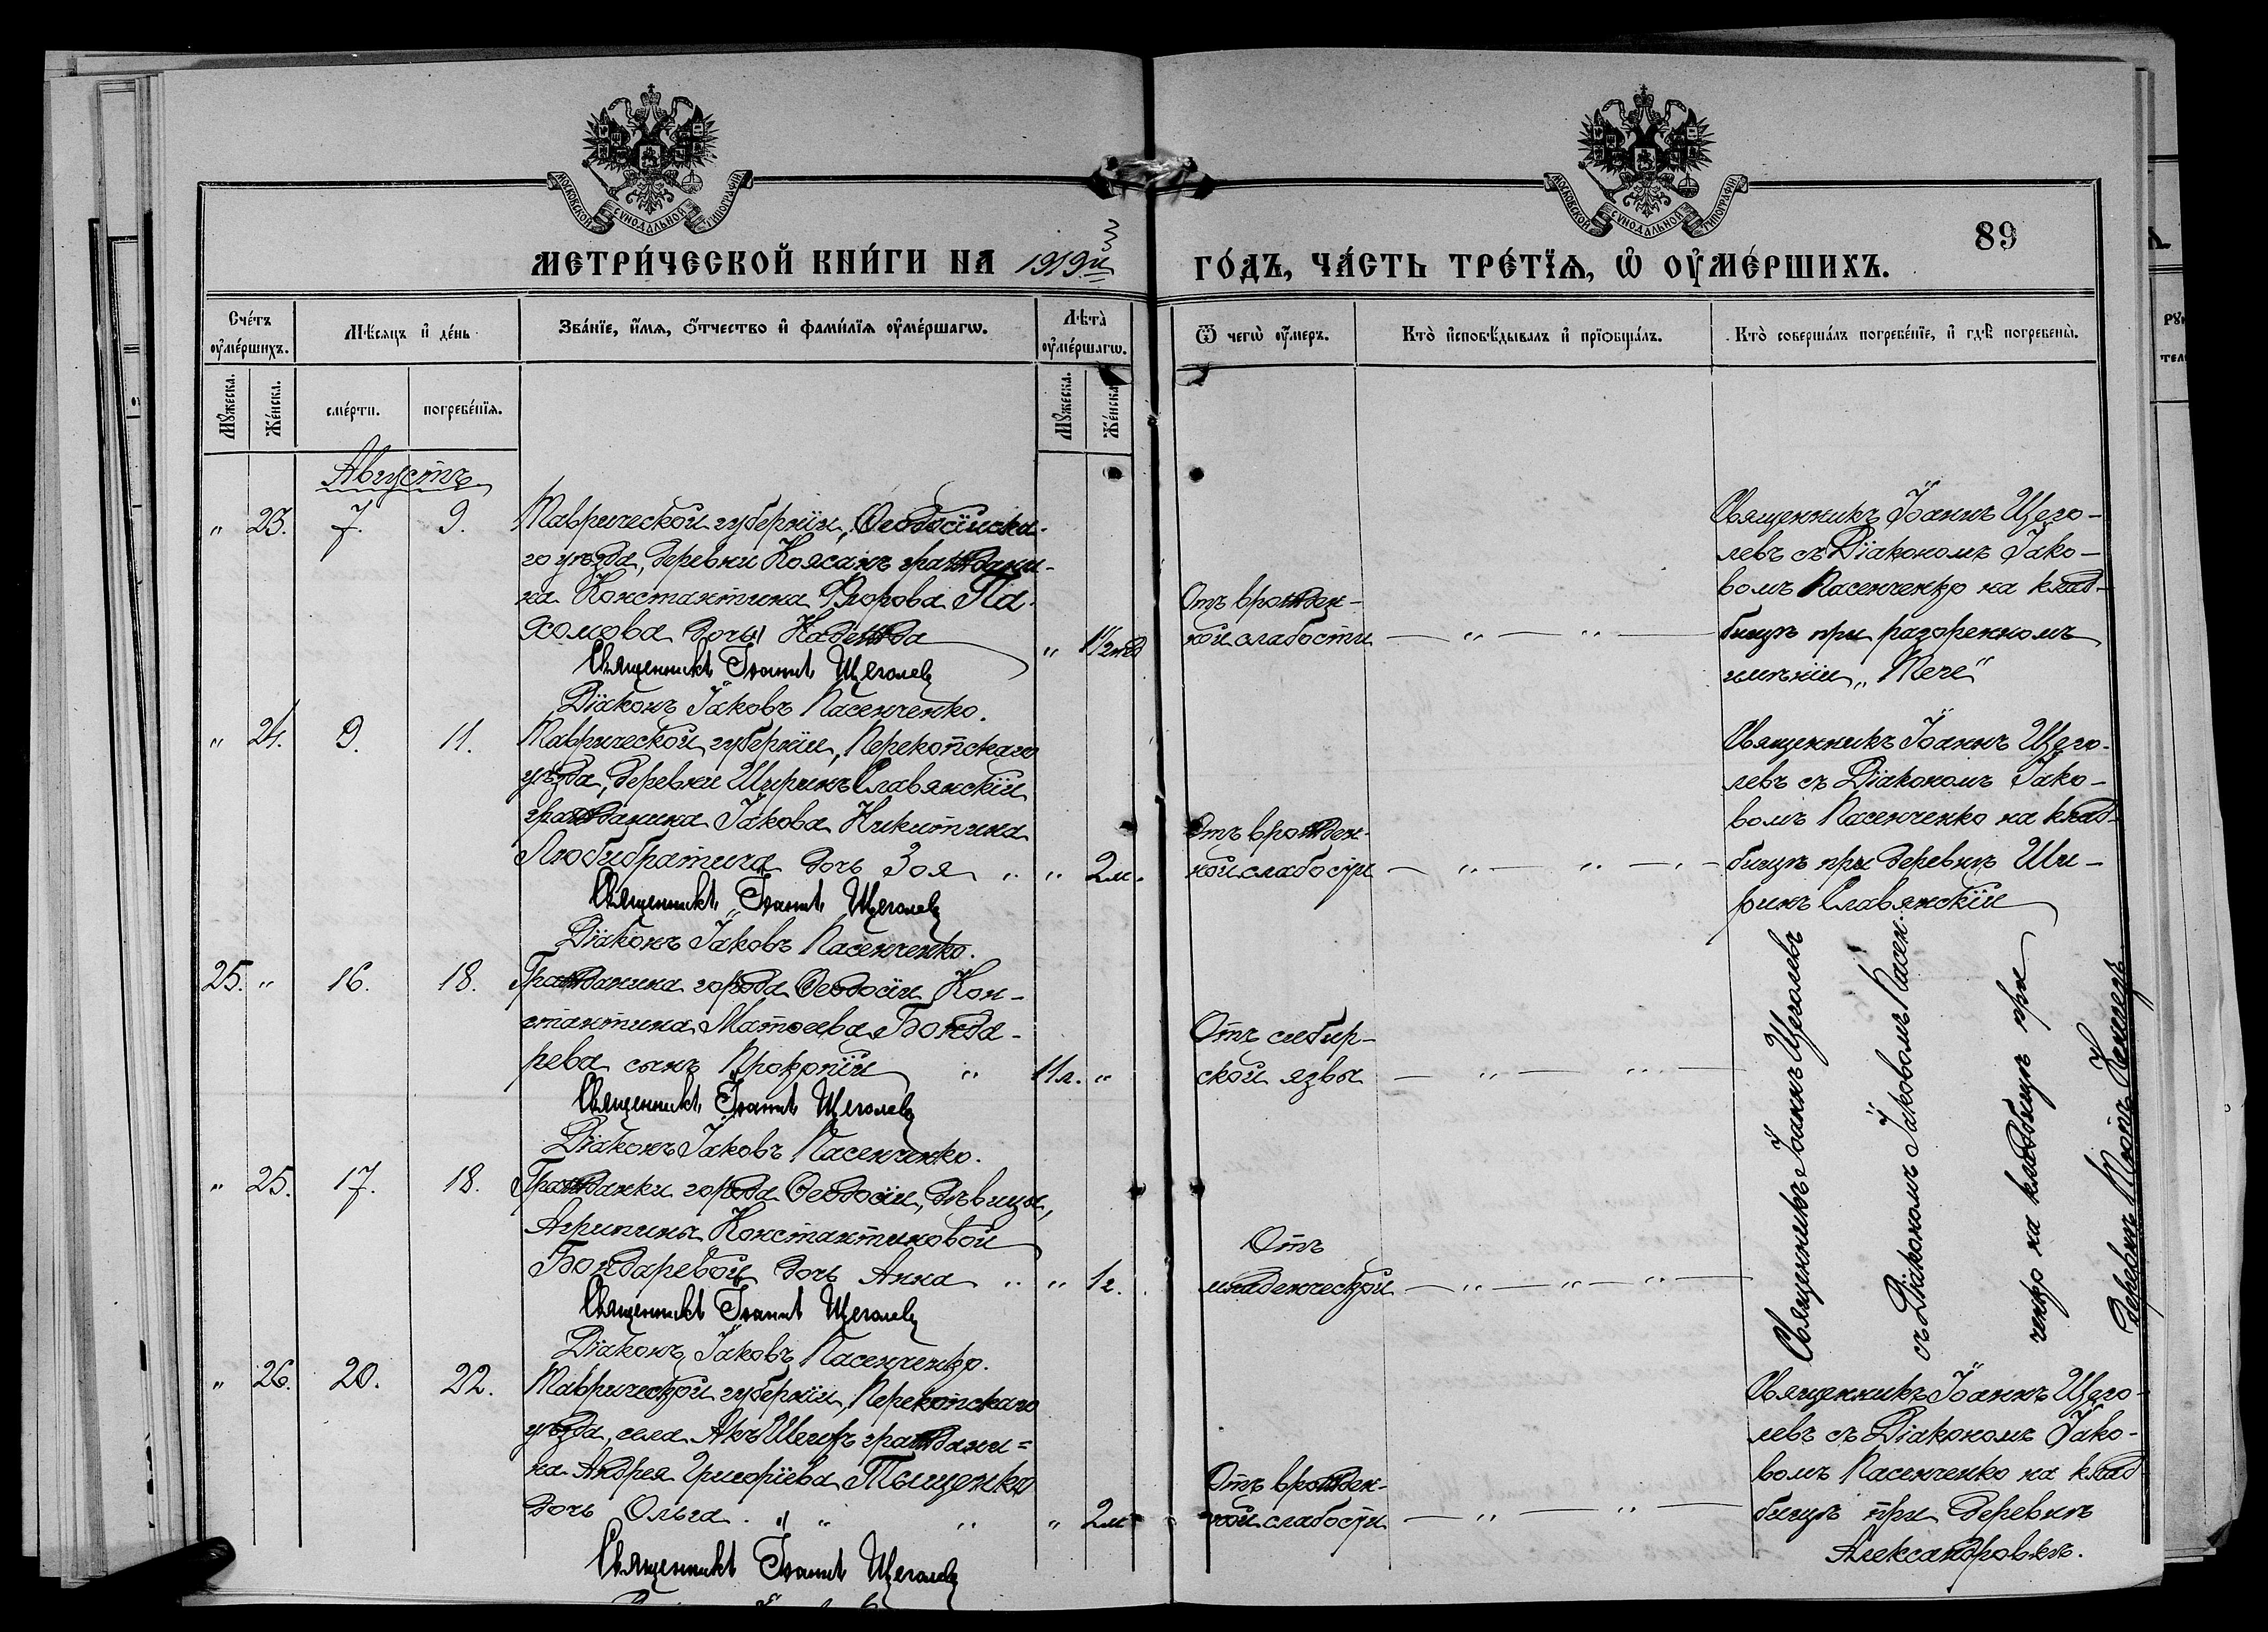 МОСКОВСКОЙ СѴНОДАЛЬНОЙ ТИПОГРАФІИ
МОСКОВСКОЙ СѴНОДАЛЬНОЙ ТИПОГРАФІИ
89
МЕТРИ́ЧЕСКОЙ КНИ́ГИ НА 1919й ГО́ДЪ, ЧА́СТЬ ТРЕ́ТЇѦ, Ѡ҆ ОУ҆МЕ́РШИХЪ.
Сче́тъ оу҆ме́ршихъ.
Мѣ́сяцъ и҆ де́нь
Зва́нїе, и҆́мѧ, ѻ҆́тчество и҆ фами́лїѧ оу҆ме́ршагѡ.
Лѣта̀ оу҆ме́ршагѡ.
Ѿ чегѡ̀ оу҆́меръ.
Кто̀ и҆сповѣ́дывалъ и҆ прїѡбща́лъ.
Кто̀ соверша́лъ погребе́нїе, и҆ гдѣ̀ погребены̀.
Мꙋ́жеска.
Же́нска.
сме́рти.
погребе́нїѧ.
Мꙋ́жеска.
Же́нска.
Августъ
" 23. 7. 9.
Таврической губерніи, Ѳеодосійска-
го уѣзда, деревни Коясанъ граждани-
на Константина Флорова Па-
хомова дочь Надежда " 1½ нед
Священникъ Іоаннъ Щеголевъ
Діаконъ Іаковъ Пасенченко.
Отъ врожден-
ной слабости — " — " —
Священникъ Іоаннъ Щего-
левъ съ Діакономъ Іако-
вомъ Пасенченко на клад-
бищѣ при разоренномъ
имѣніи „Тече"
" 24. 9. 11.
Таврической губерніи, Перекопскаго
уѣзда, деревни Ширинъ Славянскій
гражданина Іакова Никитина
Любибратича дочь Зоя " " 2 м.
Священникъ Іоаннъ Щеголевъ
Діаконъ Іаковъ Пасенченко.
Отъ врожден-
ной слабости — " — " —
Священникъ Іоаннъ Щего-
левъ съ Діакономъ Іако-
вомъ Пасенченко на клад-
бищѣ при деревнѣ Ши-
ринъ Славянскій
25. " 16. 18.
Гражданина города Ѳеодосіи Кон-
стантина Матѳеева Бонда-
рева сынъ Прокопій " 11 л. "
Священникъ Іоаннъ Щеголевъ
Діаконъ Іаковъ Пасенченко.
Отъ сибир-
ской язвы — " — " —
Священникъ Іоаннъ Щеголевъ
съ Діакономъ Іаковомъ Пасен-
ченко на кладбищѣ при
деревнѣ
" 25. 17. 18.
Гражданки города Ѳеодосіи, дѣвицы,
Агрипины Константиновой
Бондаревой дочь Анна " " 1 г.
Священникъ Іоаннъ Щеголевъ
Діаконъ Іаковъ Пасенченко.
Отъ
младенческой — " — " — " —
" 26. 20. 22.
Таврической губерніи, Перекопскаго
уѣзда, села Акъ Шеихъ граждани=
на Андрея Григоріева Тыщенко
дочь Ольга " " " " 2 м
Священникъ Іоаннъ Щеголевъ
Отъ врожден-
ной слабости — " — " —
Священникъ Іоаннъ Щего-
левъ съ Діакономъ Іако-
вомъ Пасенченко на клад-
бищѣ при деревнѣ
Александровкѣ.